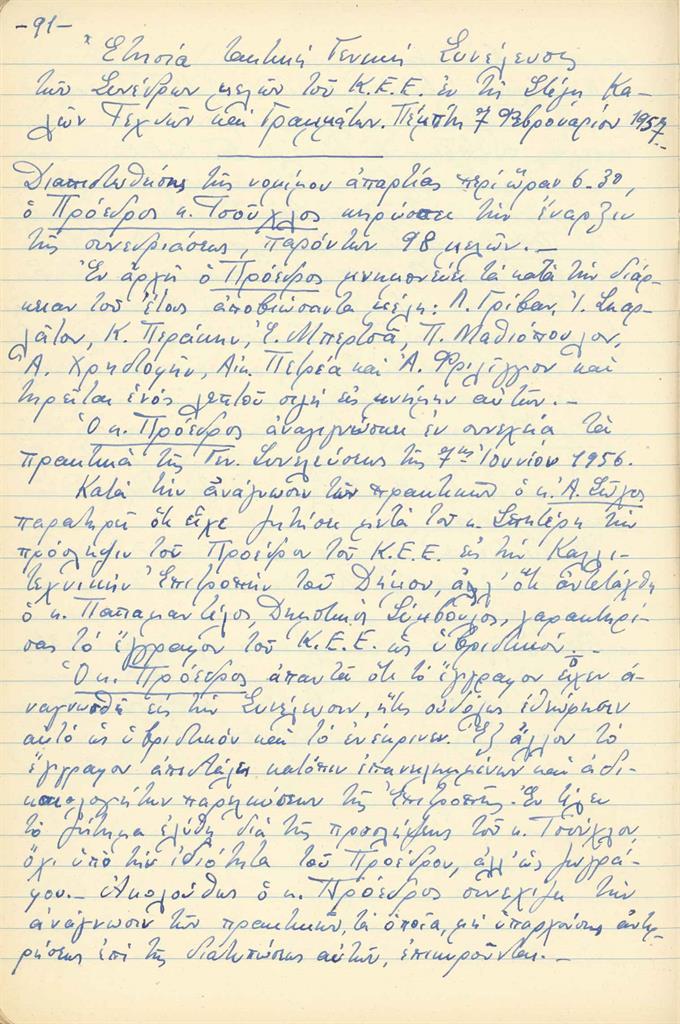 -91-
Ἐτησία τακτική Γενική Συνέλευσις
τῶν Συνέδρων μελῶν τοῦ Κ.Ε.Ε. ἐν τῇ Στέγῃ Κα-
λῶν Τεχνῶν καί Γραμμάτων. Πέμπτη 7 Φεβρουαρίου 1957.-
Διαπιστωθείσης τῆς νομίμου ἀπαρτίας περί ὥραν 6.30,
ὁ Πρόεδρος κ. Τσοῦχλος κηρύσσει τήν ἔναρξιν
τῆς συνεδριάσεως, παρόντων 98 μελῶν.-
Ἐν ἀρχῇ ὁ Πρόεδρος μνημονεύει τά κατά τήν διάρ-
κειαν τοῦ ἔτους ἀποβιώσαντα μέλη: Λ. Γρίβαν, Ἰ. Σκαρ-
λᾶτον, Κ. Περάκην, Ἐ. Μπερτσᾶ, Π. Μαθιόπουλον,
Ἀ. Χρηστομᾶνον, Αἰκ. Πετρέα καί Ἀ. Φριλίγγον καί
τηρεῖται ἑνός λεπτοῦ σιγή εἰς μνήμην αὐτῶν.-
Ὁ κ. Πρόεδρος ἀναγιγνώσκει ἐν συνεχείᾳ τά
πρακτικά τῆς Γεν. Συνελεύσεως τῆς 7ης Ἰουνίου 1956.
Κατά τήν ἀνάγνωσιν τῶν πρακτικῶν ὁ κ. Ἀ. Σῶχος
παρατηρεῖ ὅτι εἶχε ζητήσει μετά τοῦ κ. Σπητέρη τήν
πρόσληψιν τοῦ Προέδρου τοῦ Κ.Ε.Ε. εἰς τήν Καλλι-
τεχνικήν Ἐπιτροπήν τοῦ Δήμου, ἀλλ' ὅτι ἀντετάχθη
ὁ κ. Παπαμαντέλος, Δημοτικός Σύμβουλος, χαρακτηρί-
σας τό ἔγγραφον τοῦ Κ.Ε.Ε. ὡς ὑβριστικόν.-
Ὁ κ. Πρόεδρος ἀπαντᾶ ὅτι τό ἔγγραφον εἶχεν ἀ-
ναγνωσθῆ εἰς τήν Συνέλευσιν, ἥτις οὐδόλως ἐθεώρησεν
αὐτό ὡς ὑβριστικόν καί τό ἐνέκρινεν. Ἐξ ἄλλου τό
ἔγγραφον ἀπεστάλη κατόπιν ἐπανειλημμένων καί ἀδι-
καιολογήτων παρελκύσεων τῆς Ἐπιτροπῆς. Ἐν τέλει
τό ζήτημα ἐλύθη διά τῆς προσλήψεως τοῦ κ. Τσούχλου,
ὄχι ὑπό τήν ἰδιότητα τοῦ Προέδρου, ἀλλ' ὡς ζωγρά-
φου.- Ἀκολούθως ὁ κ. Πρόεδρος συνεχίζει τήν
ἀνάγνωσιν τῶν πρακτικῶν, τά ὁποῖα, μή ὑπαρχούσης ἀντιρ-
ρήσεως ἐπί τῆς διατυπώσεως αὐτῶν, ἐπικυροῦνται.-